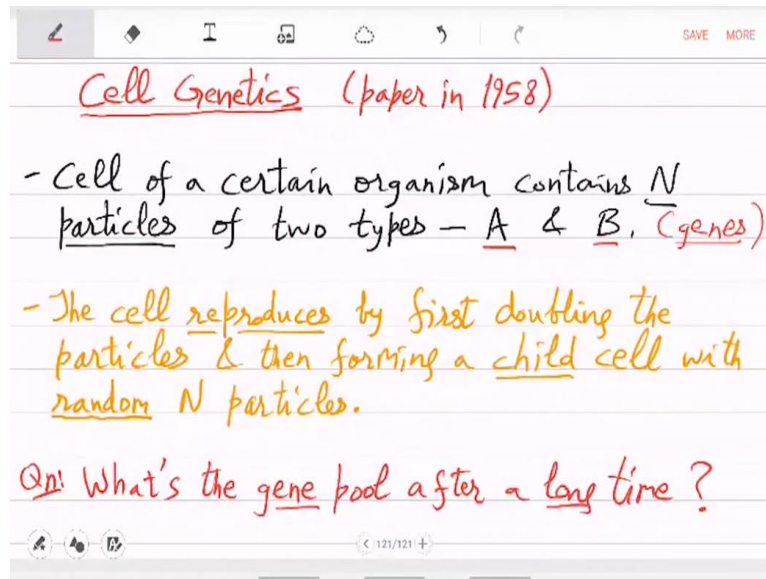 SAVE MORE
Cell Genetics (paper in 1958)
- Cell of a certain organism contains N
particles of two types – A & B. (genes)
- The cell reproduces by first doubling the
particles & then forming a child cell with
random N particles.
Qn: What's the gene pool after a long time?
< 121/121 +